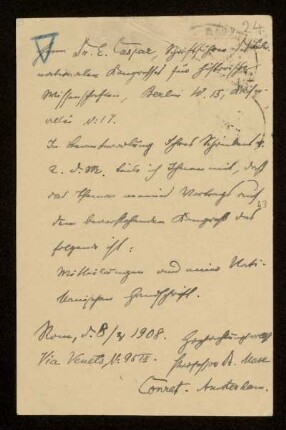 24
Herrn Dr. E. Caspar, Schriftführer d. inter-
nationalen Kongresses für historische
Wissenschaften, Berlin W. 15,
N. 17.
In Beantwortung Ihres Schreibens v.
2. d. M. teile ich Ihnen mit, daß
das Thema meines Vortrags auf
dem bevorstehenden Kongreß das
folgende ist:
Mitteilungen aus einer Vati-
kanischen Handschrift.
Rom, d. 8/3 1908. Hochachtungsvoll
Via Veneto, N. 95 III. Professor Dr.
Amsterdam.